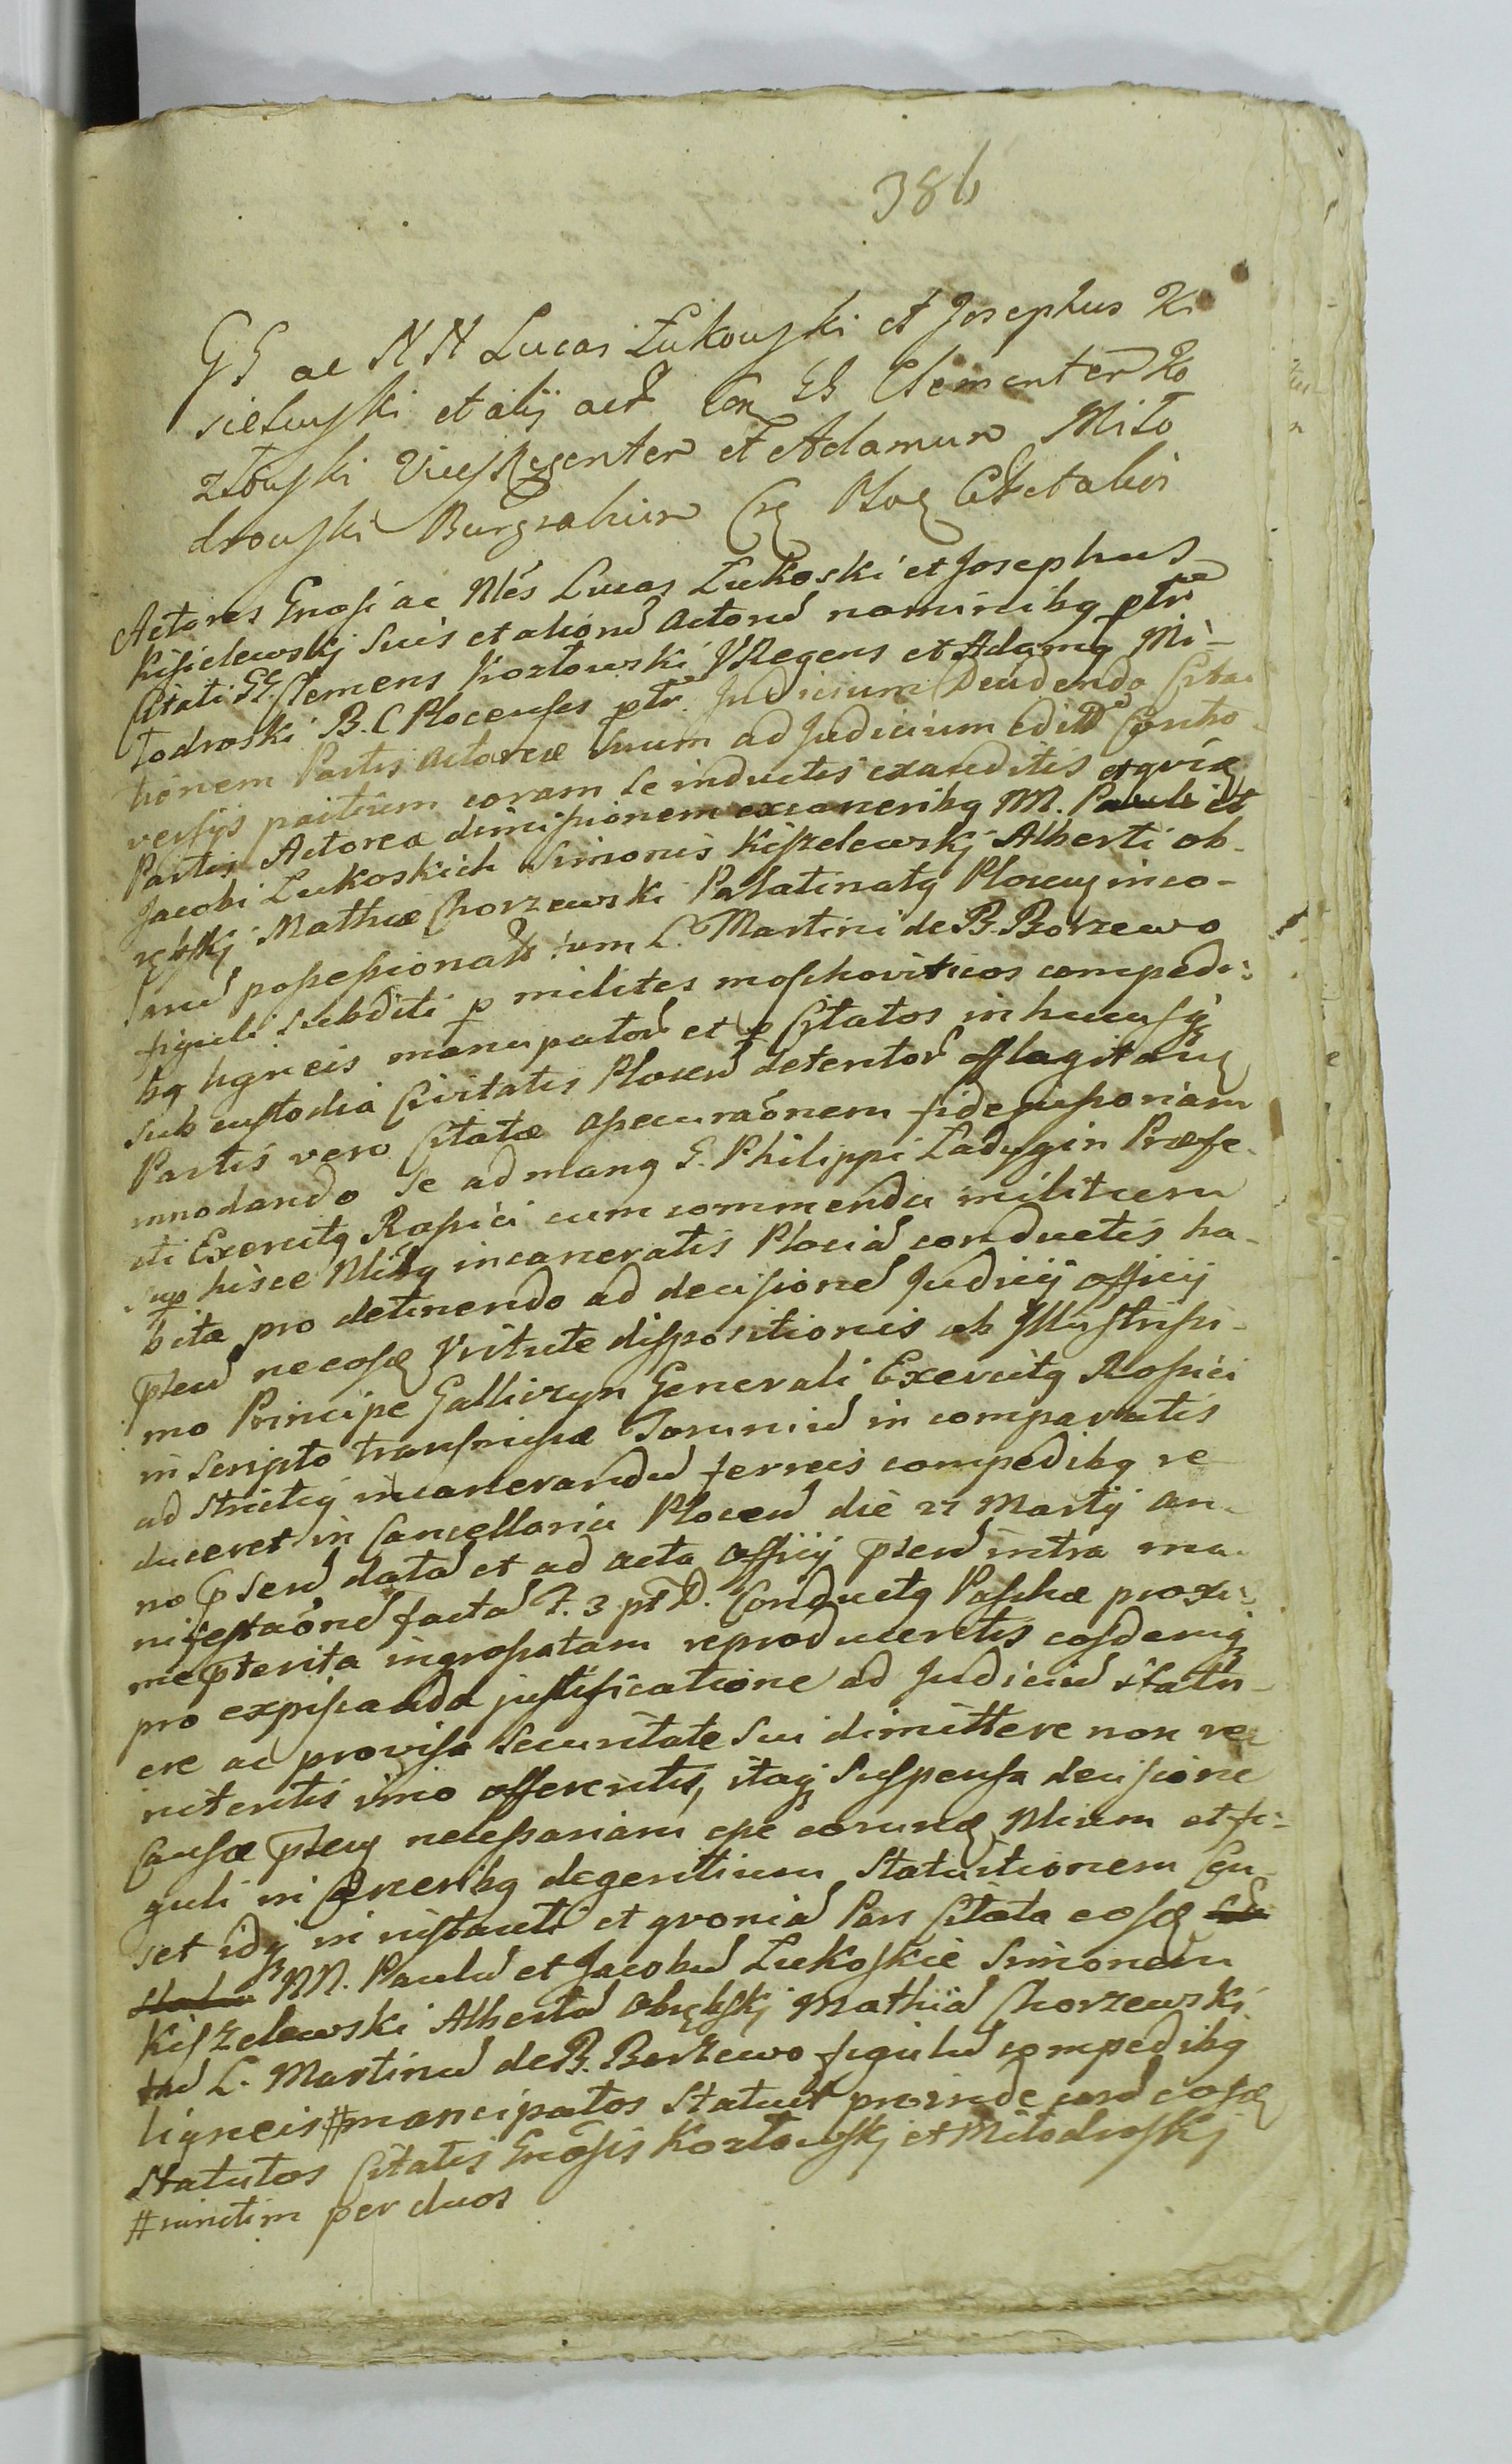 386
GG ac NN Lucas Łukowski et Josephus Ki
sielewski et alij act Con GG Clementem Ko
złowski ViceRegentem et Adamum Miło
drowski Burgrabium Cg Ploc Citt et alios
Actores Gnosi ac Nles Lucas Łukoski et Josephus
Kisielewskj suis et aliorū Actorū nominibg ptr
Citati GG. Clemens Kozłowski VRegens et Adamg Mi-
łodroski B. C Plocenses ptr. Judicium Deūdendo Cita-
tionem Partis Actoreæ suum ad Judicium edit Contro-
versijs partium coram Se inductis exauditis
Partis Actorea dimissionem excarceribg NN. Pauli et
Jacobi Łukoskich Simonis Kiszelewskj Alberti ob-
rębskj Mathiæ Chorzewski Palatinatg Plocen inco-
larū possessionatt tum L. Martini de B. Borzewo
figuli subditi p milites moschoviticos compedi-
bg ligneis mancipatorū et p Citatos inhucusq
sub custodia Civitatis Plocen detentorū afflagitantis
Partis vero Citatæ assecuraōnem fidejussoriam
innodando Se ad mang G. Philippi Ladygin Præfe-
cti Exercitg Rossici cum commenda militum
sup hisce Nlibg incarceratis Plociū conductis ha-
bita pro detinendo ad decisionē Judicij officij
pten necosq Virtute dispositionis ab Illustrissi-
mo Principe Galliczyn Generali Exercitg Rossici
in scripto transmissæ Toruniū in comparatis
ad strictig incarcerandū ferreis compedibg re
duceret in Cancellaria Plocen die 27 Martij an-
no pten datā et ad acta officij pten intra ma-
nifestaōnē factā F. 3 pt D. Conductg Paschæ proxi-
me pterita ingrossatam reproducentis eosdemq
pro expiscanda justificatione ad Judiciū statu-
ere ac provisa securitate sui dimittere non re-
nitentis imo offerentis, itaq suspensa decisione
Causæ pten necessariam esse eorundē Nlium et fi-
guli in Carceribg degentium Statuitionem Cen-
set idq in instanti et qvoniā Pars Citata eosdē
NN. Paulū et Jacobū Łukoskie Simonem
Kiszelewski Albertū Obrębskj Mathiā Chorzewski
tū L. Martinū de B. Borzewo figulū compedibg
ligneis # mancipatos Statuit proinde eosdē
Statutos Citatis Gnosis Kozłowskj et Miłodroskj
# iunctim per duos